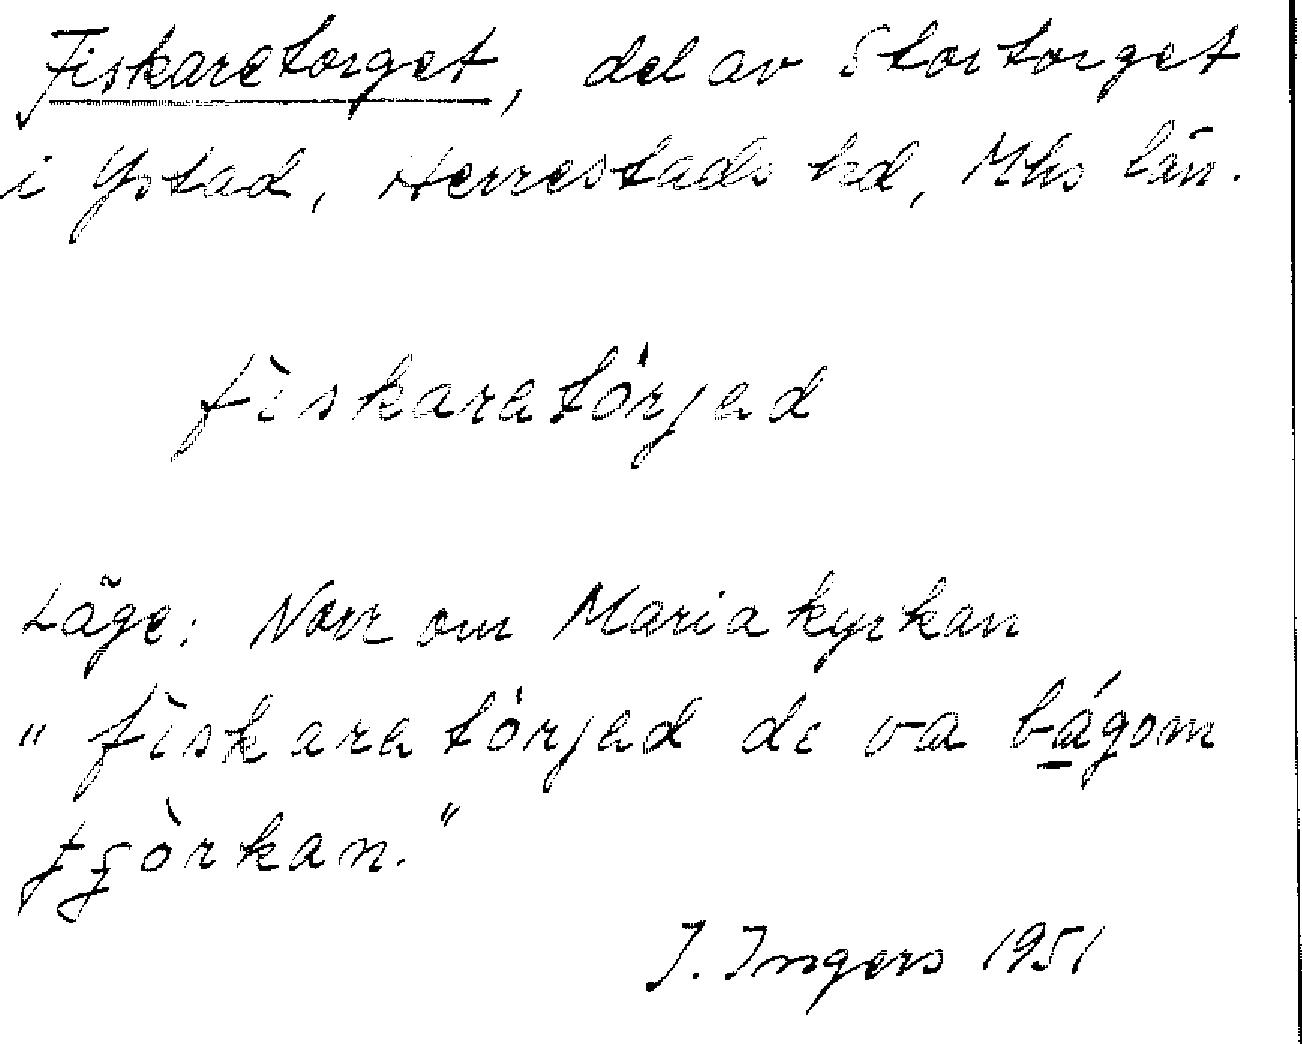 Fiskaretorget, del av Stortorget
i Ystad, Herrestads hd, Mhs län.
fìskaratórjad
Läge: Norr om Mariakyrkan
" fìskaratórjad de va bágom
tɕòrkan."
J. Ingers 1951